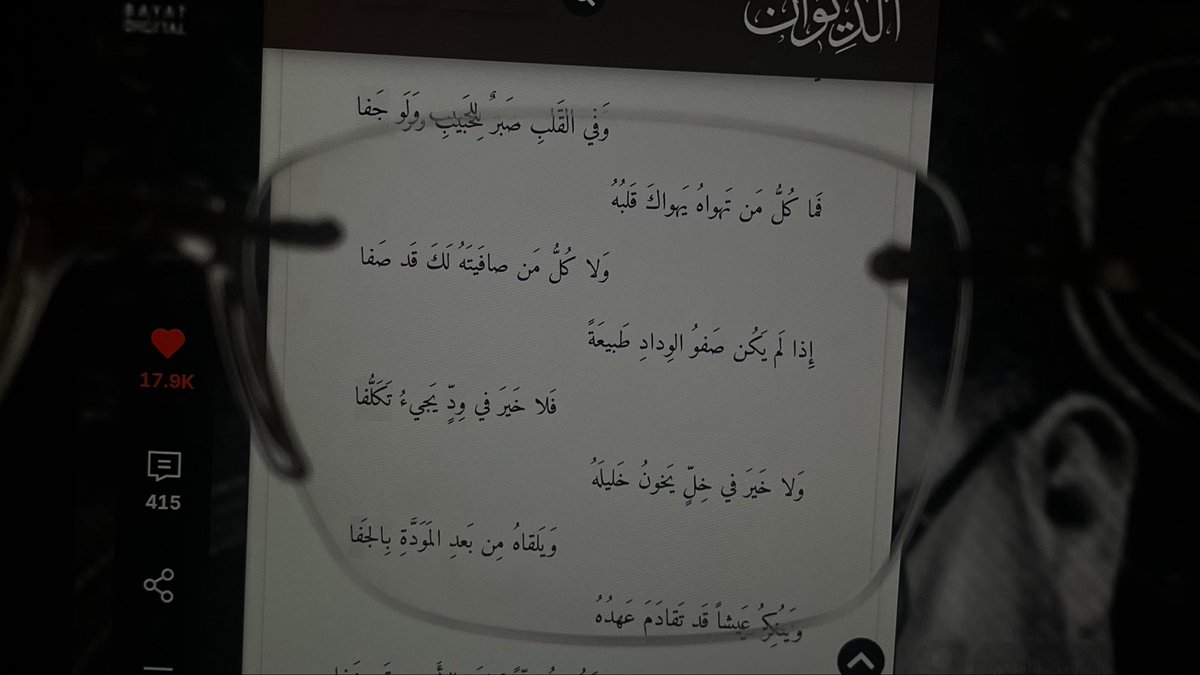 BAYAT
DIGITAL
الدِيوَان
وَفي القَلبِ صَبرٌ لِلحَبيبِ وَلَو جَفا
فَما كُلُّ مَن تَهواهُ يَهواكَ قَلبُهُ
وَلا كُلُّ مَن صافَيتَهُ لَكَ قَد صَفا
إِذا لَم يَكُن صَفوُ الوِدادِ طَبيعَةً
فَلا خَيرَ في وِدٍّ يَجيءُ تَكَلُّفا
وَلا خَيرَ في خِلٍّ يَخونُ خَليلَهُ
وَيَلقاهُ مِن بَعدِ المَوَدَّةِ بِالجَفا
وَيُنكِرُ عَيشاً قَد تَقادَمَ عَهدُهُ
17.9K
415